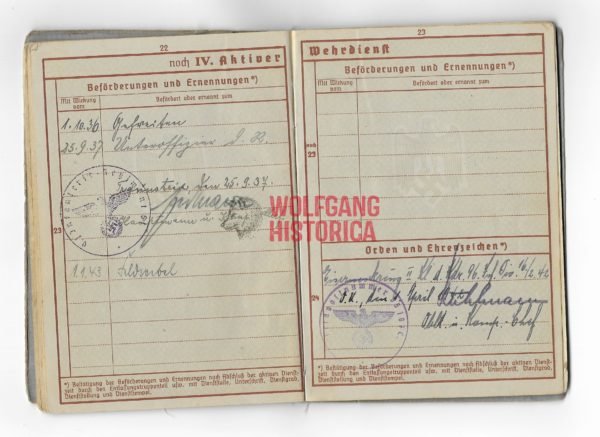 22
noch IV. Aktiver
Beförderungen und Ernennungen*)
Mit Wirkung vom
Befördert oder ernannt zum
1.10.36 Gefreiten
25.9.37 Unteroffizier d. R.
den 25.9.37.
Hauptmann u.
23
1.1.43 Feldwebel
*) Bestätigung der Beförderungen und Ernennungen nach Abschluß der aktiven Dienst-
zeit durch den Entlassungstruppenteil usw. mit Dienststelle, Unterschrift, Dienstgrad,
Dienststellung und Dienststempel.
23
Wehrdienst
Beförderungen und Ernennungen*)
noch
23
Orden und Ehrenzeichen*)
II Kl. d. Kdr. 96. Inf. Div. 2.42
24
O.U., den April
Oblt. u. Komp.-Chef
*) Bestätigung der Beförderungen und Ernennungen nach Abschluß der aktiven Dienst-
zeit durch den Entlassungstruppenteil usw. mit Dienststelle, Unterschrift, Dienstgrad,
Dienststellung und Dienststempel.
WOLFGANG
HISTORICA